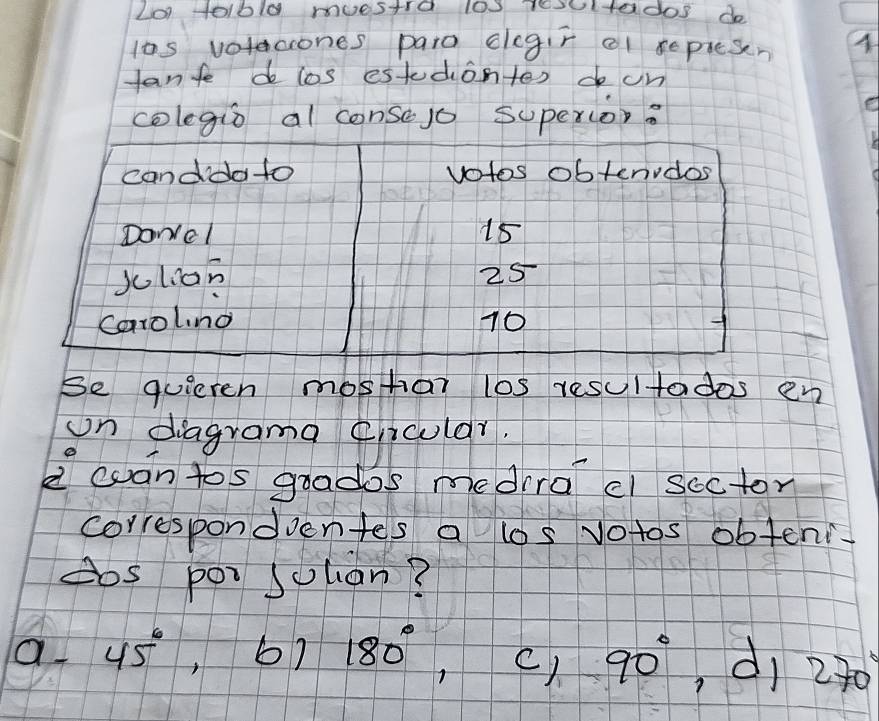 La tabla muestra los resultados de
las votaciones para elegir el represen
tante de los estudiantes de un
colegio al consejo superior:
candidato votos obtenidos
Daniel 15
Julian 25
carolina 10
se quieren mostrar los resultados en
un diagrama circular.
¿ cuantos grados medirá el sector
correspondientes a los votos obteni-
dos por Julian?
a- 45°, b) 180°, c) 90°, d) 270°